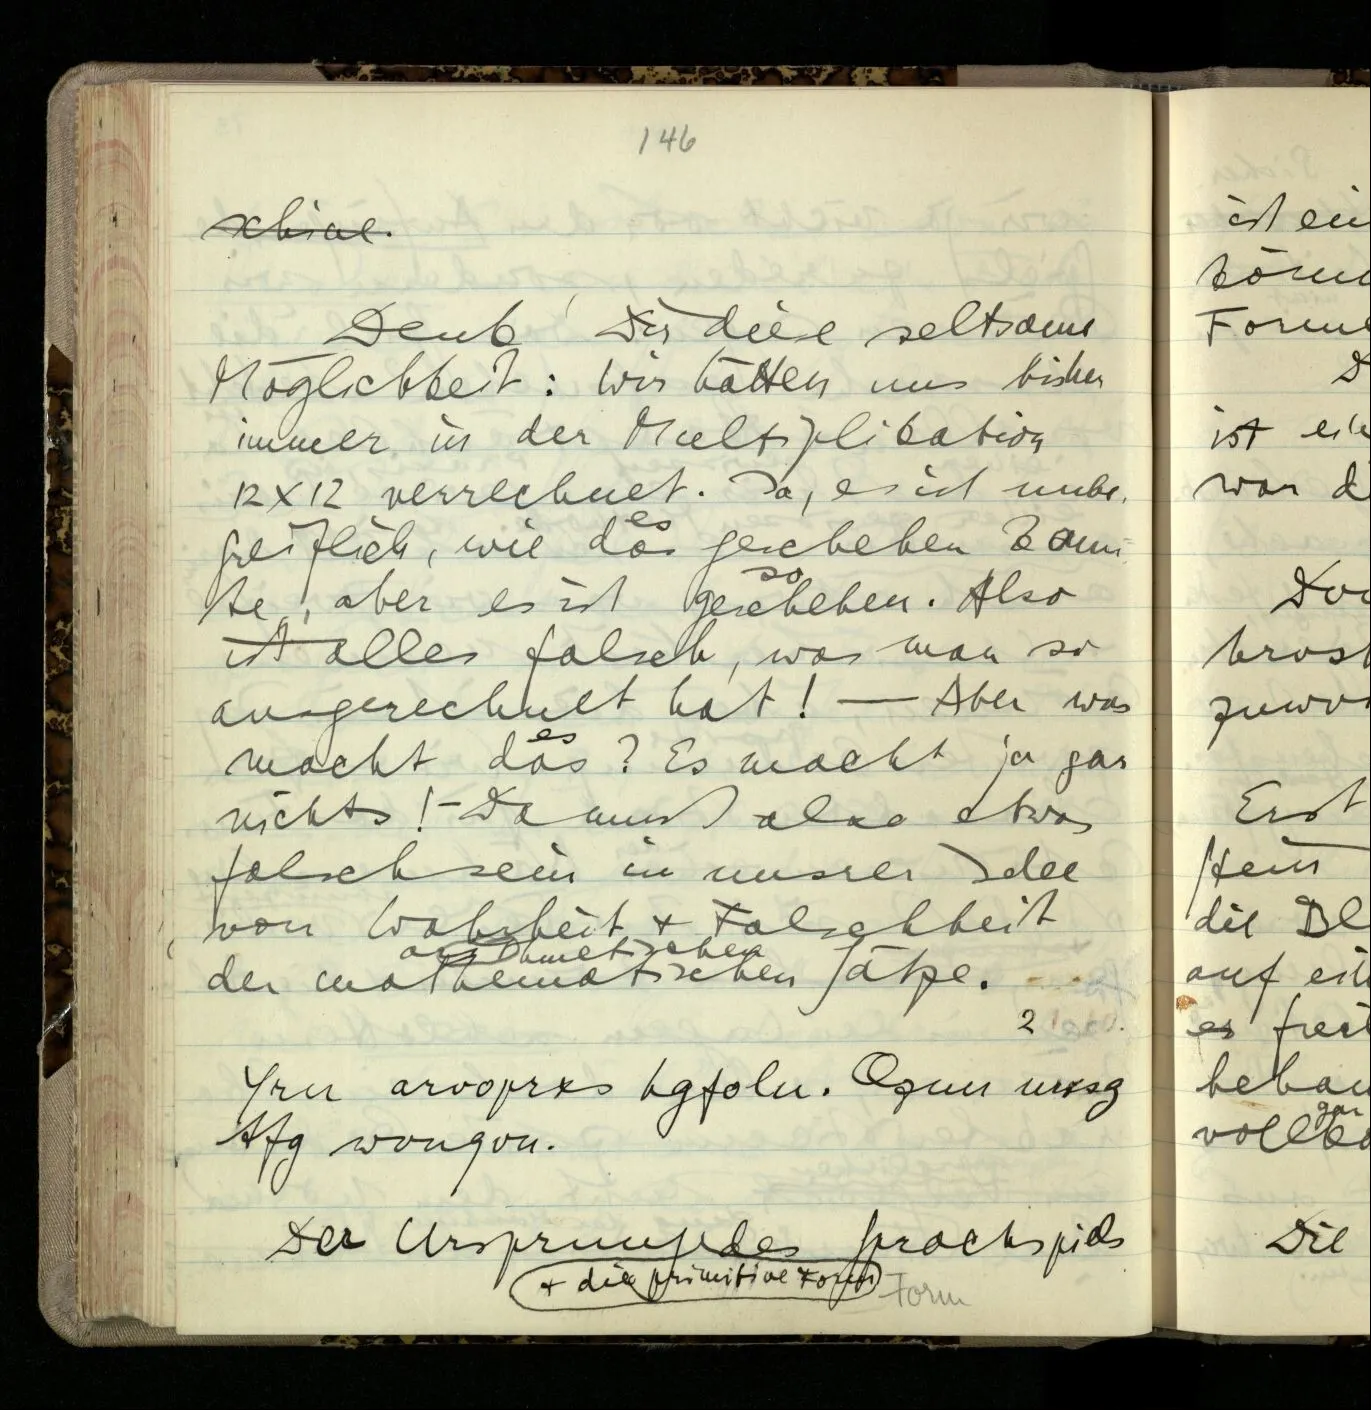 146
schine.
Denk' Dir diese seltsame
Möglichkeit: Wir hätten uns bisher
immer in der Multiplikation
12x12 verrechnet. Ja, es ist unbe-
es
greiflich, wie das geschehen konn-
so
te, aber es ist geschehen. Also
ist alles falsch, was man so
ausgerechnet hat! — Aber was
es
macht das? Es macht ja gar
nichts! – Da muß also etwas
falsch sein in unsrer Idee
von Wahrheit + Falschheit
arithmetischen
der mathematischen Sätze.
2
Yru arvoprxs hgfolu. Ozun
Afg wovgvu.
Der Ursprung des Sprachspiels
+ die primitive Form
Form
ist ein
Form
D
ist ein
war d
Erst
Stein
die Bl
auf ein
es
gar
Die